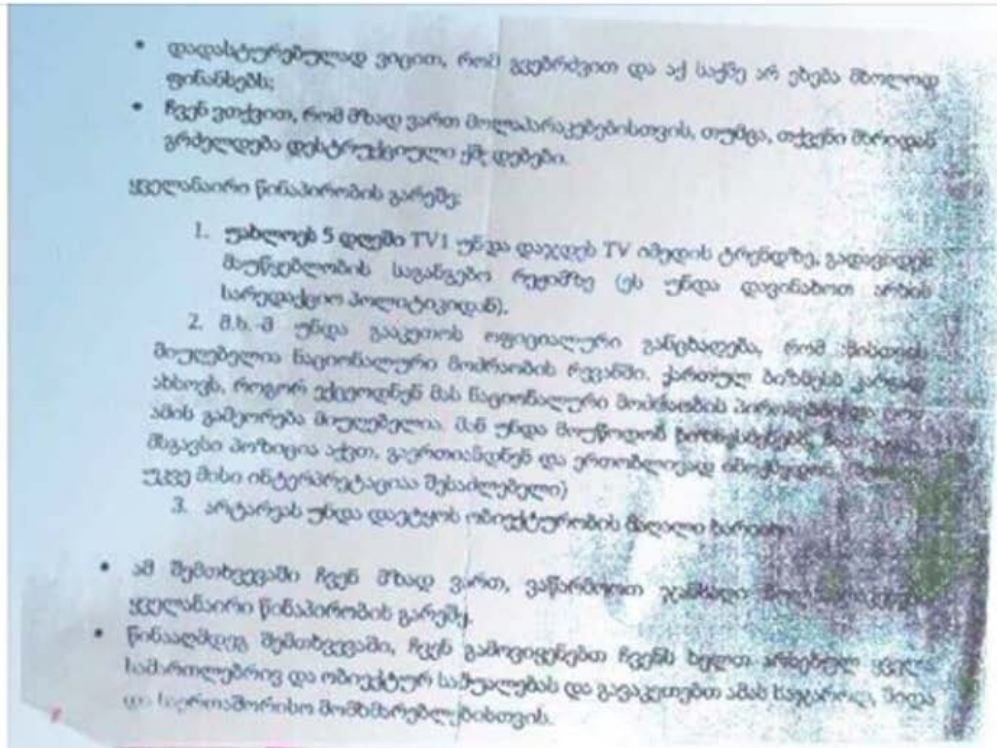 • დადასტურებულად ვიცით, რომ გვებრძვით და აქ საქმე არ ეხება მხოლოდ
ფინანსებს;
• ჩვენ ვთქვით, რომ მზად ვართ მოლაპარაკებებისთვის, თუმცა, თქვენი მხრიდან
გრძელდება დესტრუქციული ქმედებები.
ყველანაირი წინაპირობის გარეშე:
1. უახლოეს 5 დღეში TV1 უნდა დაჯდეს TV იმედის ტრენდზე, გადავიდეს
მაუწყებლობის საგანგებო რეჟიმზე (ეს უნდა დავინახოთ არხის
სარედაქციო პოლიტიკიდან).
2. მ.ხ.-მ უნდა გააკეთოს ოფიციალური განცხადება, რომ მისთვის
მიუღებელია ნაციონალური მოძრაობის რევანში. ქართულ ბიზნესს კარგად
ახსოვს, როგორ ექცეოდნენ მას ნაციონალური მოძრაობის პირობებში და
ამის გამეორება მიუღებელია. მან უნდა მოუწოდოს ბიზნესმენებს,
მსგავსი პოზიცია აქვთ, გაერთიანდნენ და ერთობლივად იმოქმედონ.
უკვე მისი ინტერპრეტაციაა შესაძლებელი)
3. არტარეას უნდა დაეტყოს ობიექტურობის მაღალი ხარისხი
• ამ შემთხვევაში ჩვენ მზად ვართ, ვაწარმოოთ
ყველანაირი წინაპირობის გარეშე.
• წინააღმდეგ შემთხვევაში, ჩვენ გამოვიყენებთ ჩვენს ხელთ არსებულ ყველა
სამართლებრივ და ობიექტურ საშუალებას და გავაკეთებთ ამას საჯაროდ, შიდა
და საერთაშორისო მომხმარებლებისთვის.